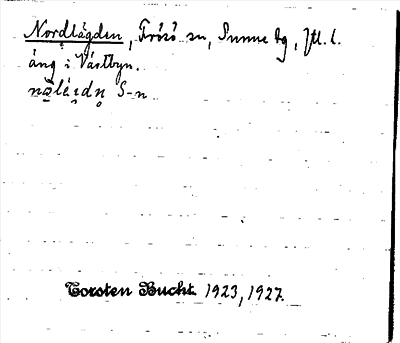 Nordlägden, Frösö sn, Sunne tg, Jtl. l.
äng i Västbyn.
S-n
Torsten Bucht. 1923, 1927.